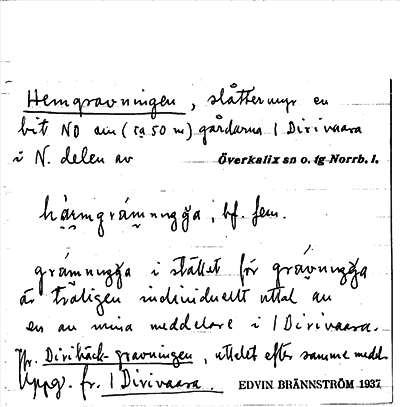 Hemgravningen, slåttermyr en
bit NO om (ca 50 m) gårdarna i Dirivaara
i N. delen av Överkalix sn o. tg Norrb. l.
hä̀rmgrámnngga, bf. fem.
grámnuggga i stället för grávnuggga
är troligen individuellt uttal av
en av mina meddelare i Dirivaara.
Jfr. Diribäck-gravningen, uttalet efter samme medd.
Uppg. fr. Dirivaara.
EDVIN BRÄNNSTRÖM 1937.